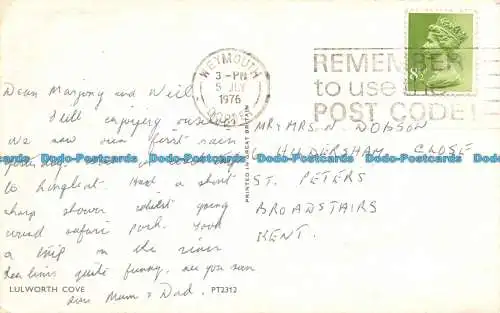 WEYMOUTH
3 - PM
5 JLY
1976
DORSET
REMEMBER
to use the
POST CODE!
8½
Dear Marjory and Neil
Still enjoying ourselves
We saw our first rain
to Longleat. Had a short
sharp shower whilst going
round safari park. Took
a trip on the river
sea lions quite funny. See you soon
love Mum & Dad.
MR & MRS. N. DOBSON
HILDERSHAM CLOSE
ST. PETERS
BROADSTAIRS
KENT.
PRINTED IN GREAT BRITAIN
LULWORTH COVE
PT2312
Dodo-Postcards Dodo-Postcards Dodo-Postcards Dodo-Postcards Dodo-Postcards